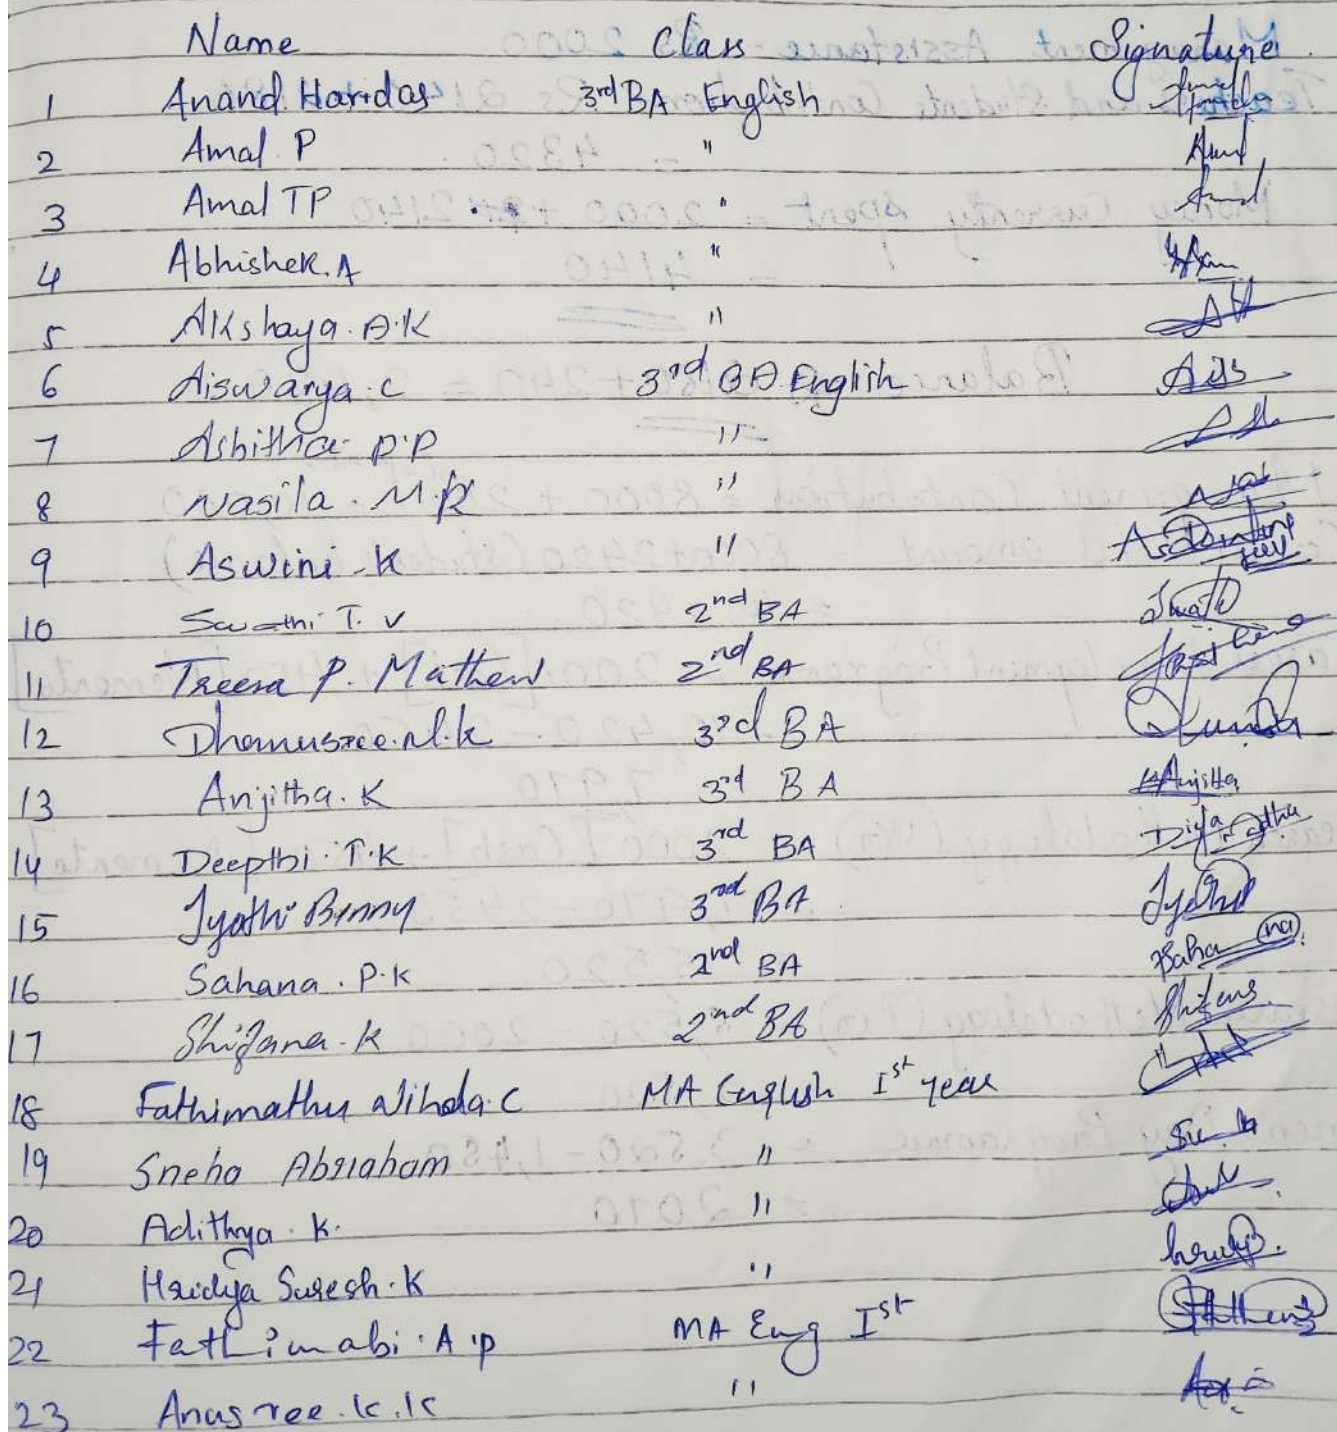 Name Class Signature
1 Anand Haridas 3rd BA English
2 Amal P " Amal
3 Amal TP " Amal
4 Abhishek. A "
5 Akshaya. A.K "
6 Aiswarya. C 3rd BA English Aiss
7 Ashitha P.P "
8 Nasila. M.K "
9 Aswini. K "
10 Swathi T. V 2nd BA Swathi
11 Treesa P. Mathew 2nd BA
12 Dhanusree. M.k 3rd BA
13 Anjitha. K 3rd BA Anjitha
14 Deepthi. T.K 3rd BA
15 Jyothi Binny 3rd BA Jyothi
16 Sahana. P.K 2nd BA Sahana
17 Shifana. K 2nd BA
18 Fathimathu Nihda. C MA English Ist year
19 Sneha Abraham "
20 Adithya. K. "
21 Hridya Suresh. K "
22 Fathimabi. A.p MA Eng Ist
23 Anusree. k.k "